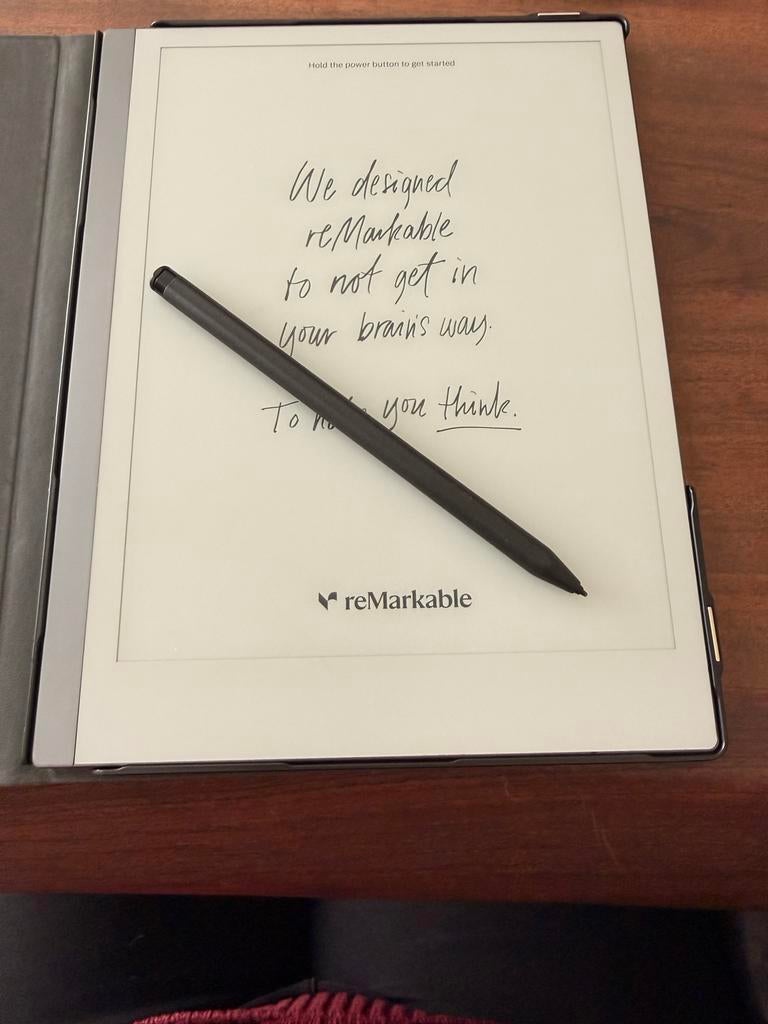 Hold the power button to get started
We designed
reMarkable
to not get in
your brain's way.
To you think.
reMarkable